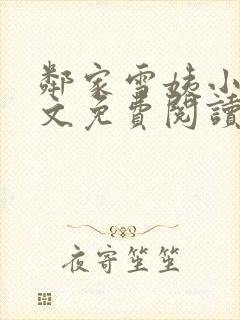 鄰家雪姨小
文免費閱讀
夜寄笙笙